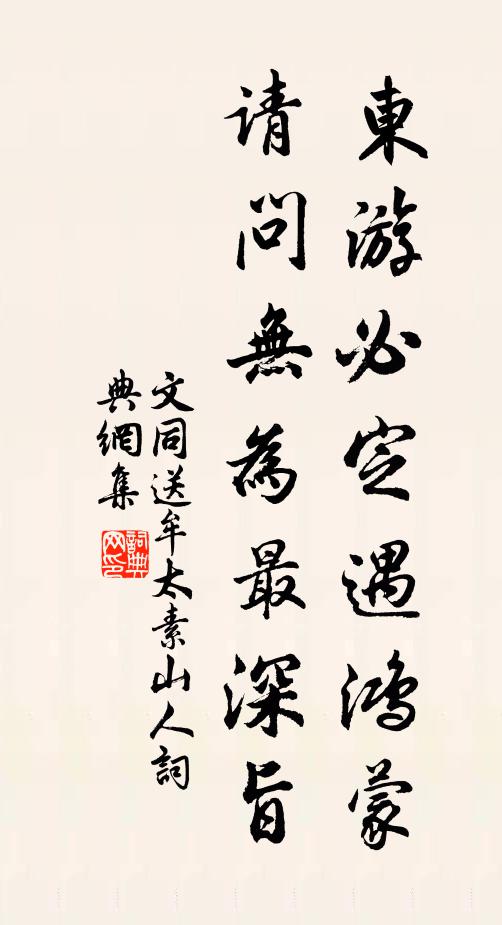 東游必定遇鸿蒙
请問無為最深旨
文同送牟太素山人詞
典網集
詞典
网印